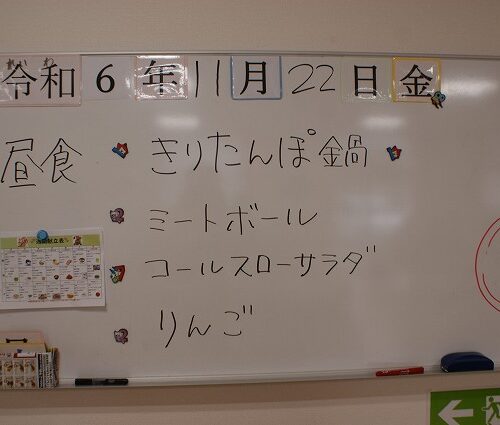 れいわ
令和6年11月22日金
昼食
きりたんぽ鍋
ミートボール
コールスローサラダ
りんご